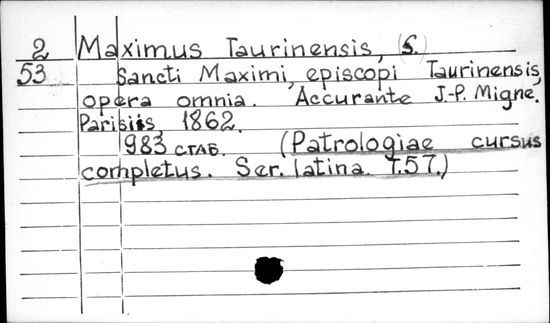 2 Maximus Taurinensis, (S.)
53 Sancti Maximi, episcopi Taurinensis,
opera omnia. Accurante J.-P. Migne.
Parisiis, 1862.
983 стлб. (Patrologiae cursus
completus. Ser. latina. T.57.)